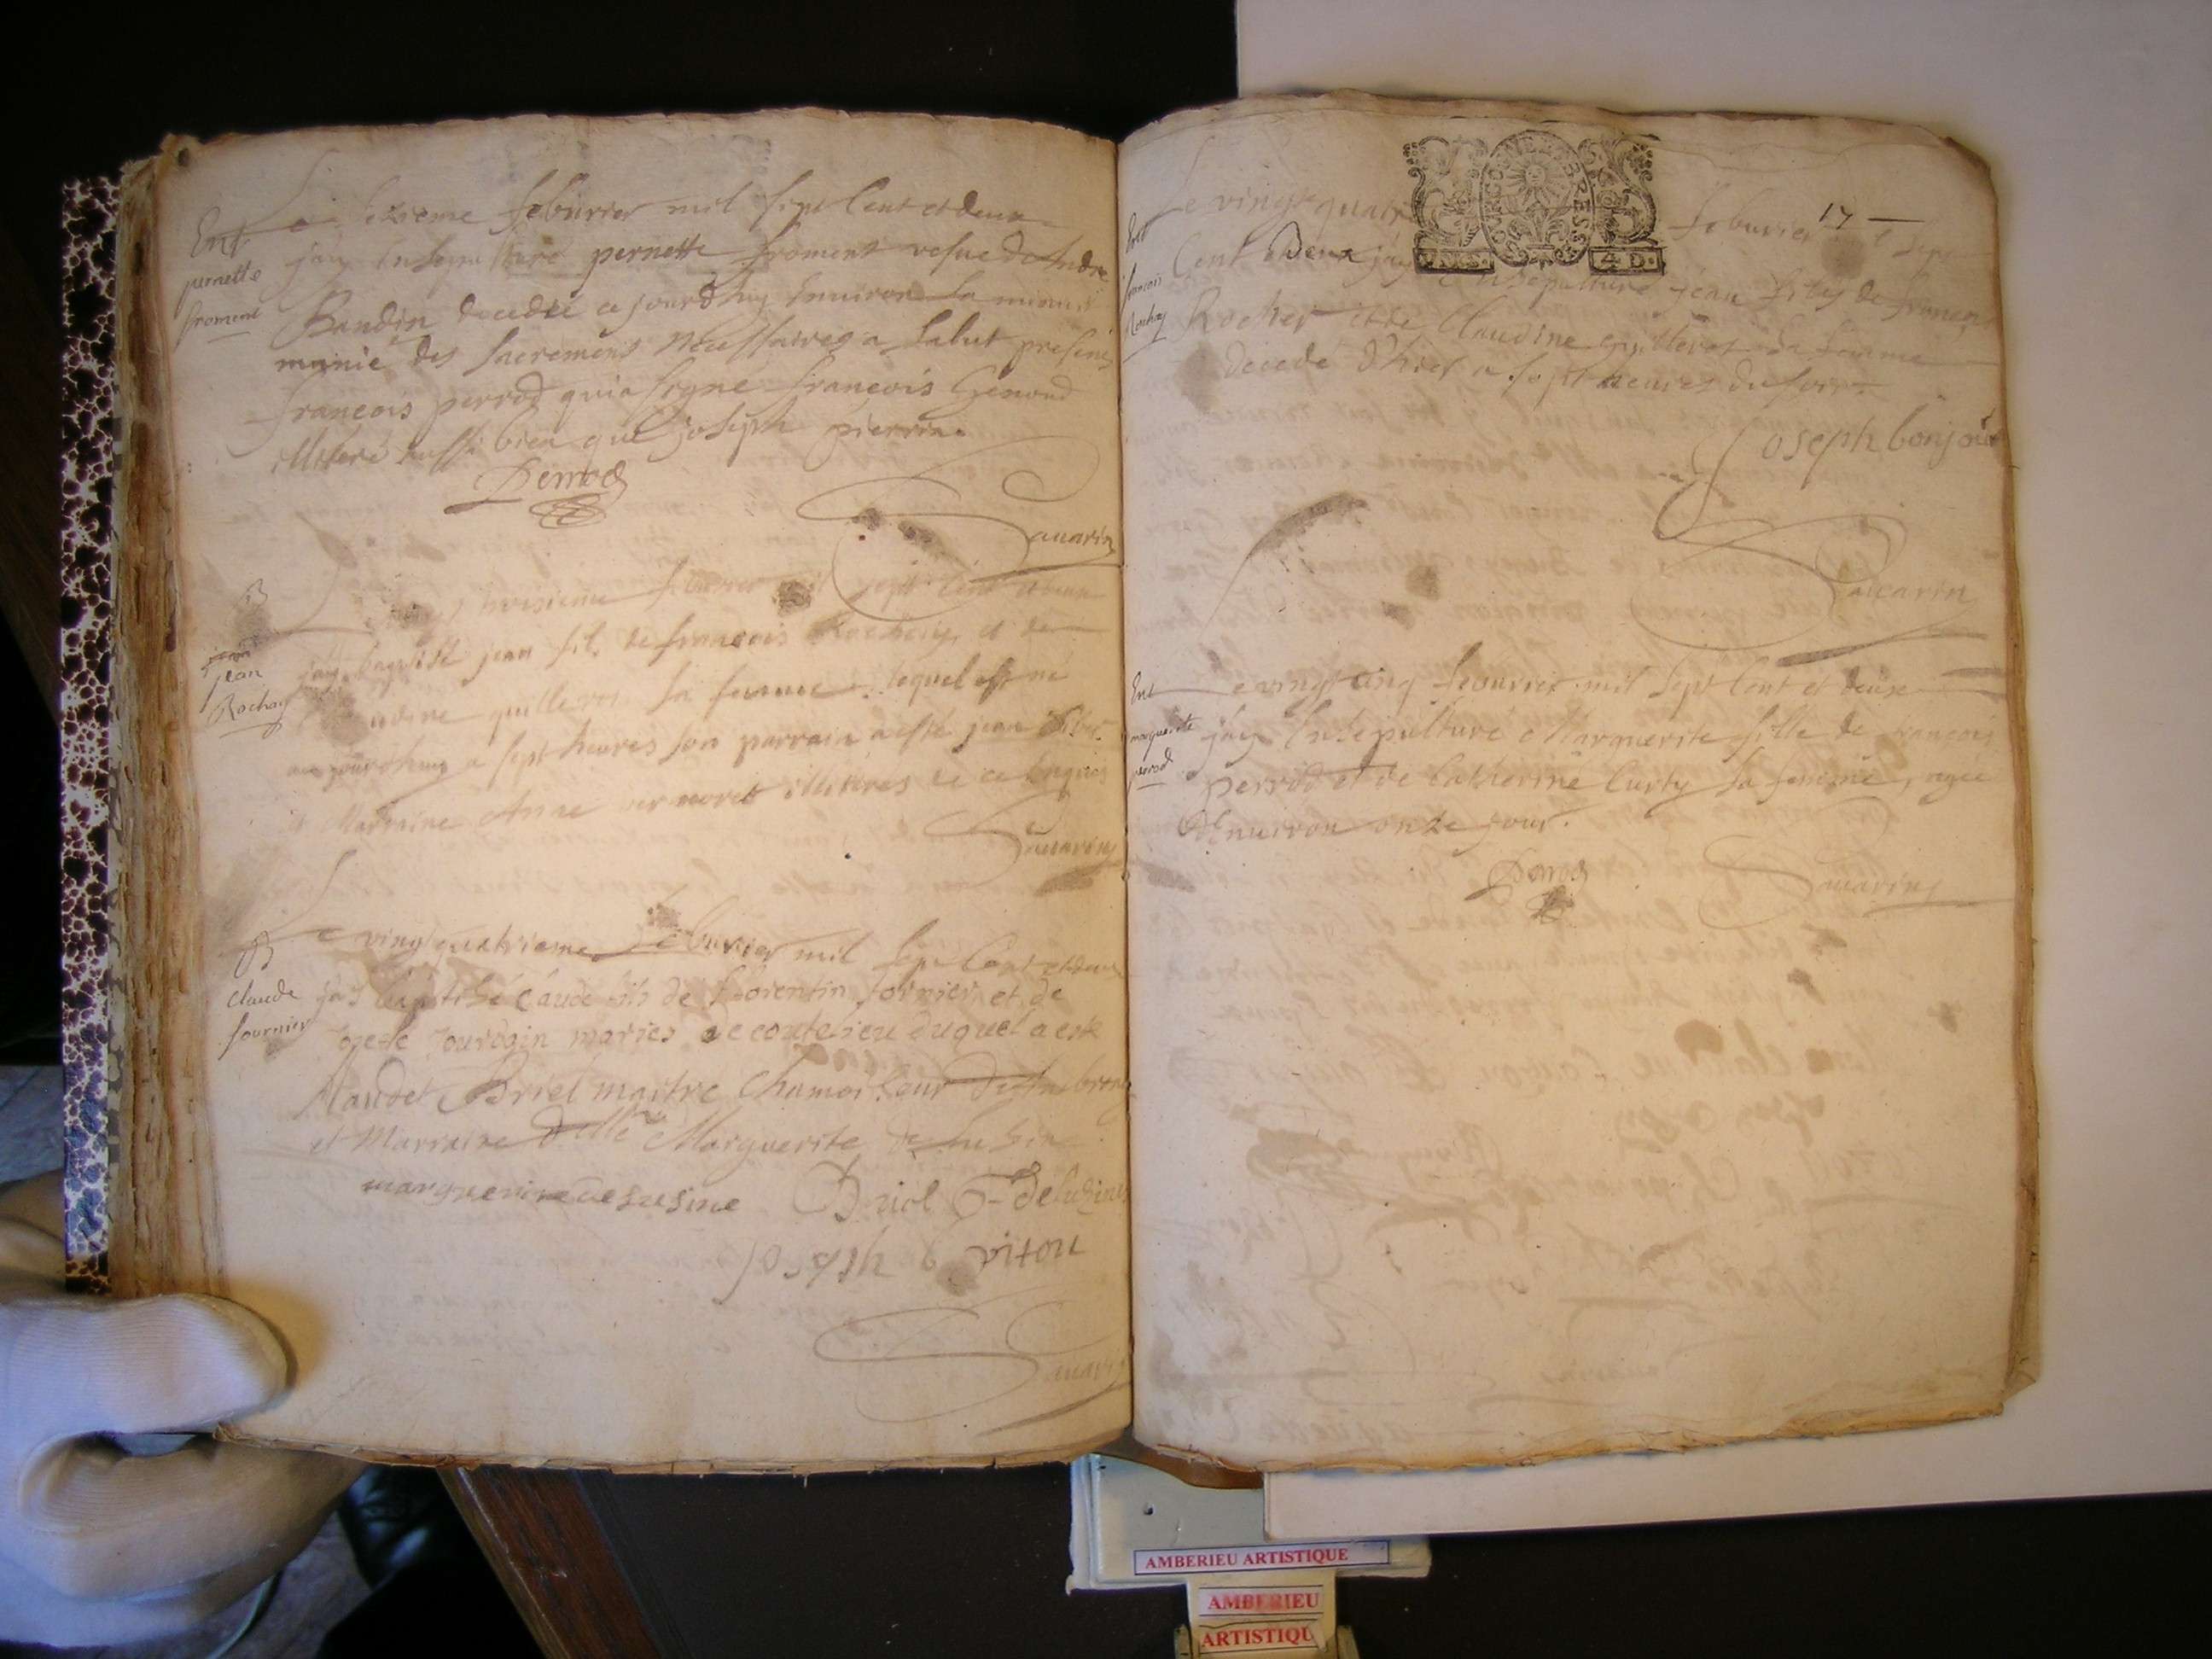 Ent
pernette
froment
Le sixieme feburier mil sept Cent et deux
jay Ensepulturé pernette froment vefue de Andre
Baudin decedée ce jourdhuy Enuiron la minuit
munie des sacremens necessaires a salut presens
francois perrod qui a signé francois Genoud
illiteré aussi bien que joseph pierrin
Perrod
Sauarin
B
jean
jean
Rochay
huisieme feburier mil sept Cent et deux
jay baptisé jean fil de francois et de
quilleret sa femme lequel est né
aujourdhuy a sept heures son parrain a esté jean
et Marraine Anne vermoret illitires de ce Enquis
Sauarin
B
Claude
fournier
Le vingt quatrieme feburier mil sept Cent et deux
jay baptisé Claude fils de florentin fornier et de
jourdain mariés de ce dit lieu duquel a esté
Claudet Briel maitre Chamoiseur
et Marraine delle Marguerite de Lusine
marguerite de Lusine Briol F-deluzine
Joseph b vitou
Sauarin
Ent
francois
Rochay
Le vingt quatr feburier 17
Cent et Deux jay Ensepulturé jean fils de francois
Rocher et de Claudine quilleret sa femme
decedé d'hier a sept heures du soir
Joseph bonjour
Sauarin
Ent
marguerite
perrod
Le vingt cinq feburier mil sept Cent et deux
jay Ensepulturé Marguerite fille de francois
perrod et de Catherine Curty sa femme, agée
d'Enuiron onze jour.
Perrod
Sauarin
AMBERIEU ARTISTIQUE
AMBERIEU
ARTISTIQU